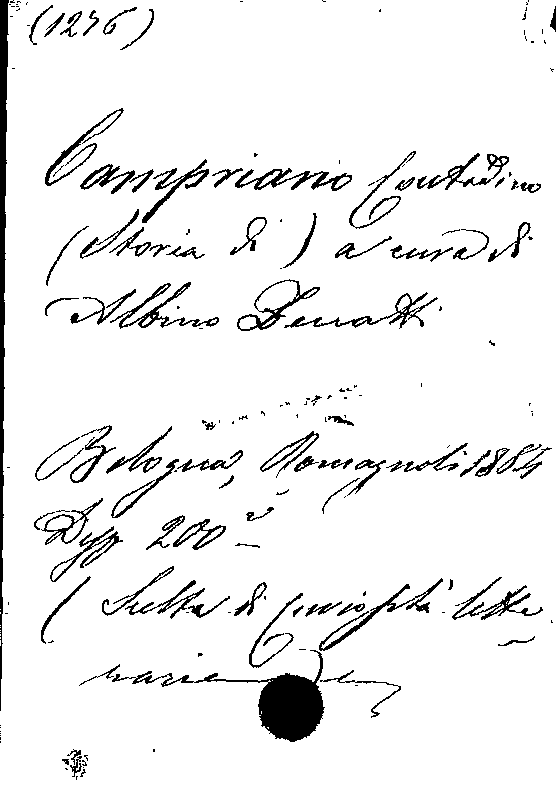 (1276)
Campriano Contadino
(Storia di) a cura di
Albino Zenatti
Bologna, Romagnoli 1884
Disp 200ª
(Scelta di curiosità lette
rarie